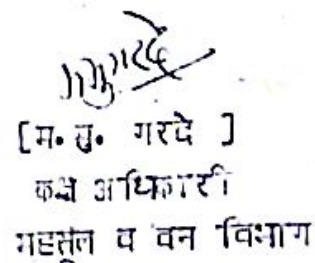 [म. सु. गरदे ]
कक्ष अधिकारी
महसूल व वन विभाग